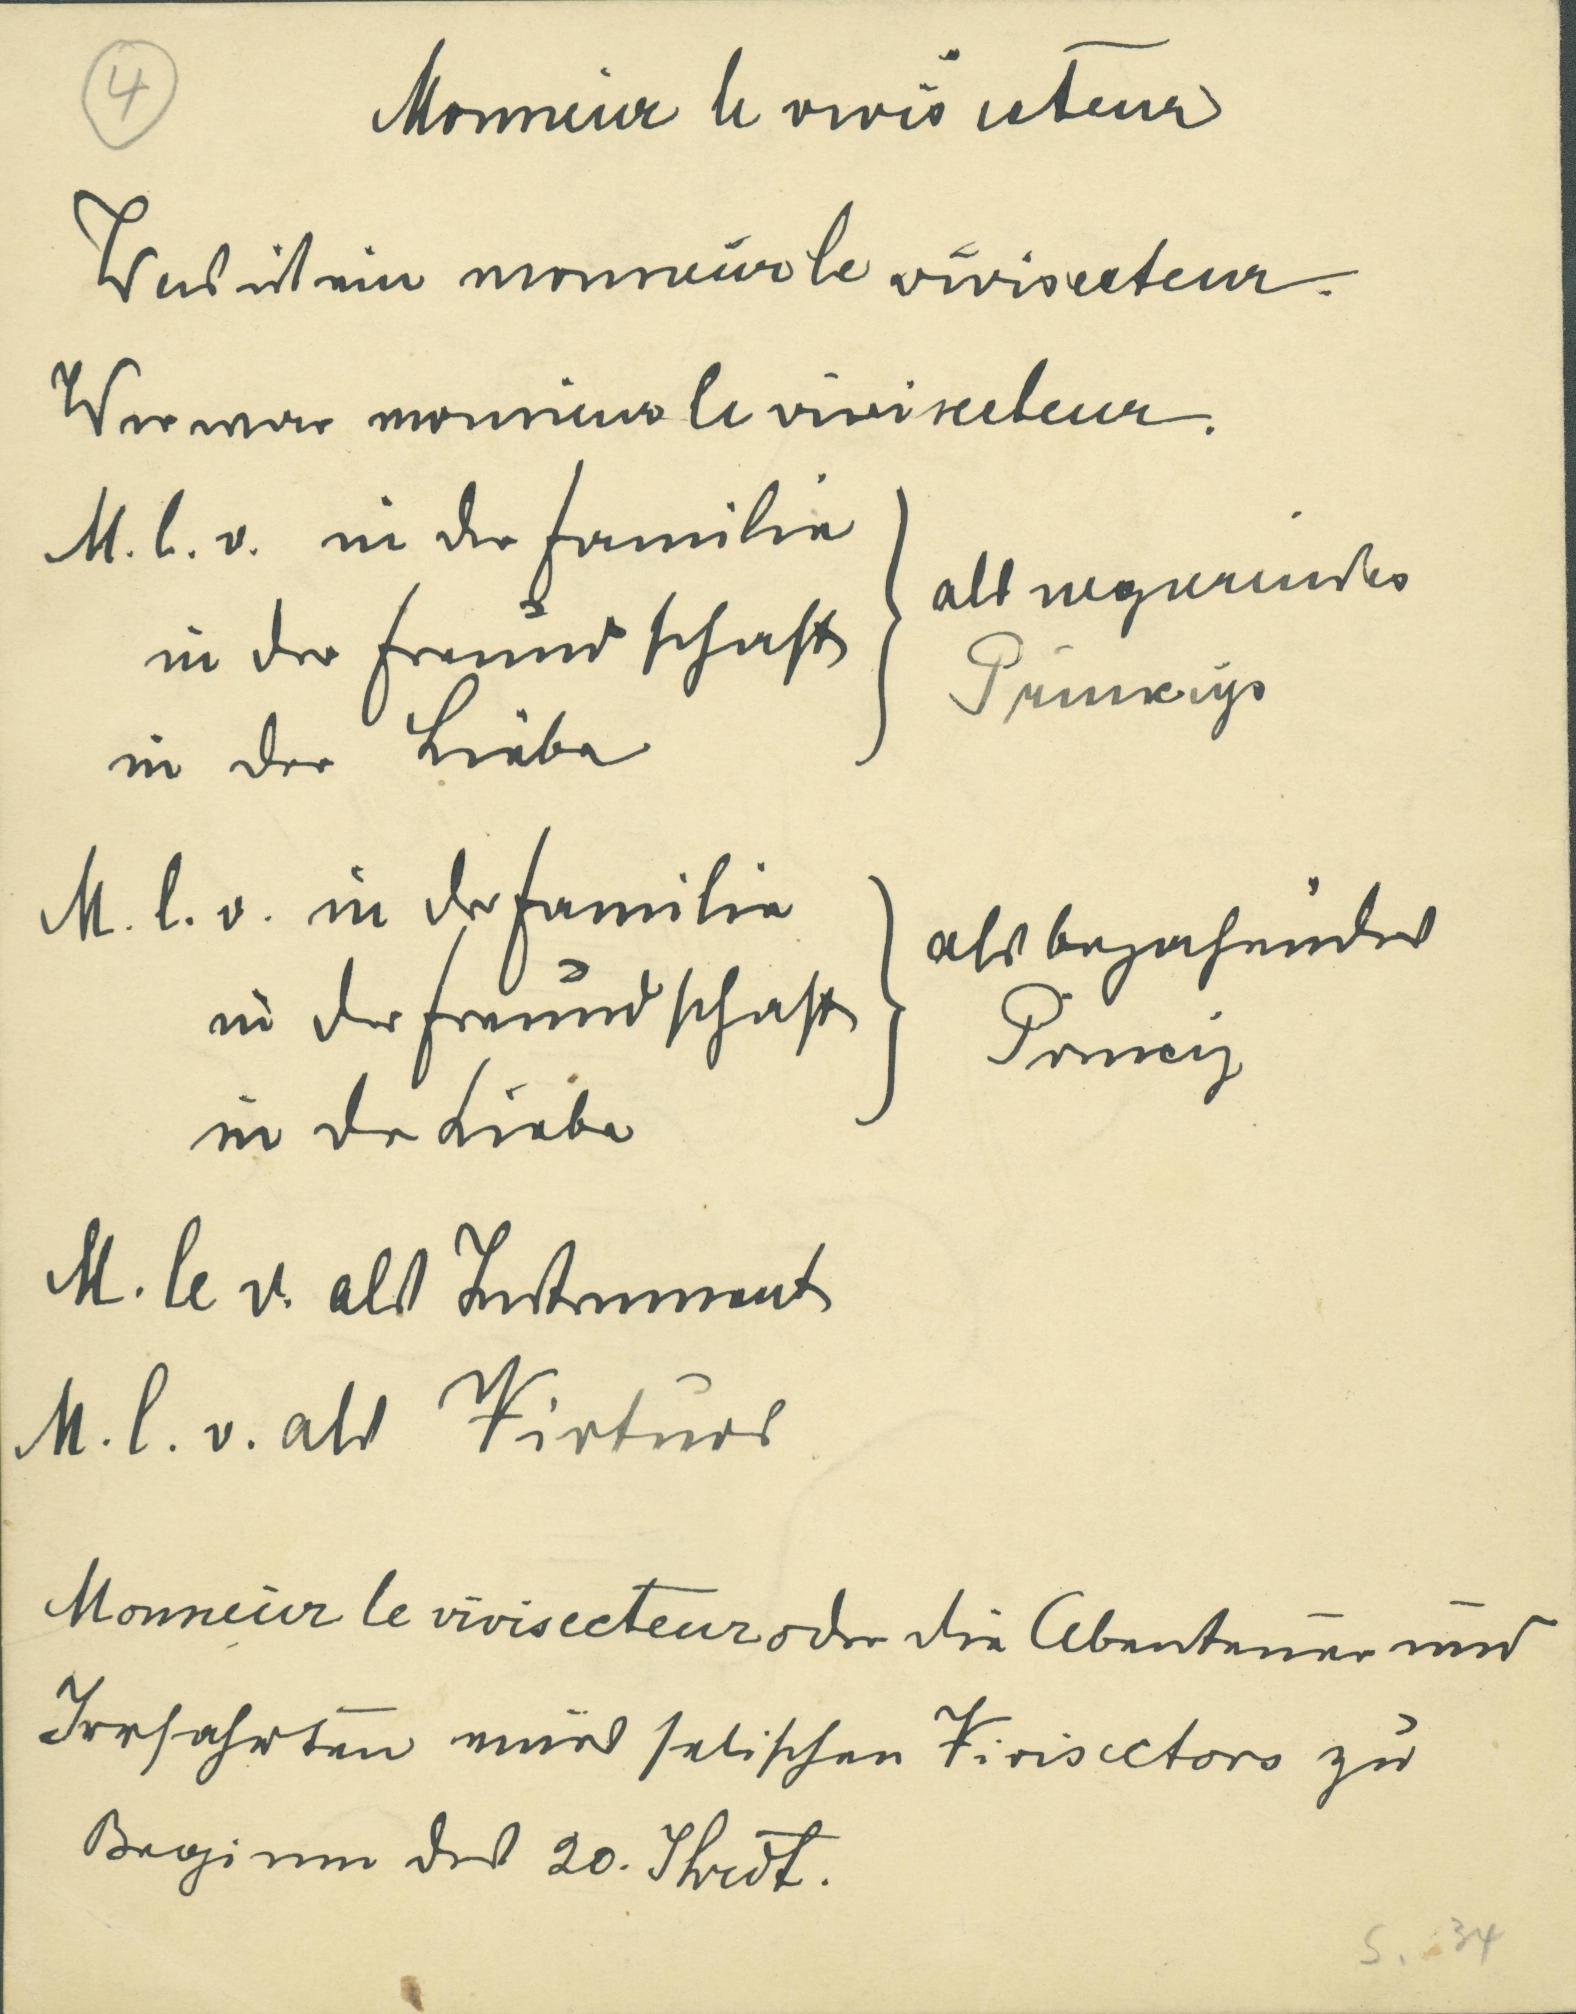 4
Monsieur le vivisecteur
Was ist ein monsieur le vivisecteur.
Wer war monsieur le vivisecteur.
M. l. v. in der Familie
in der Freundschaft
in der Liebe
als negierendes
Princip
M. l. v. in der Familie
in der Freundschaft
in der Liebe
als bejahendes
Princip
M. le v. als Instrument
M. l. v. als Virtuos
Monsieur le vivisecteur oder die Abenteuer und
Irrfahrten eines seelischen Vivisectors zu
Beginn des 20. Jhrdt.
S. 34